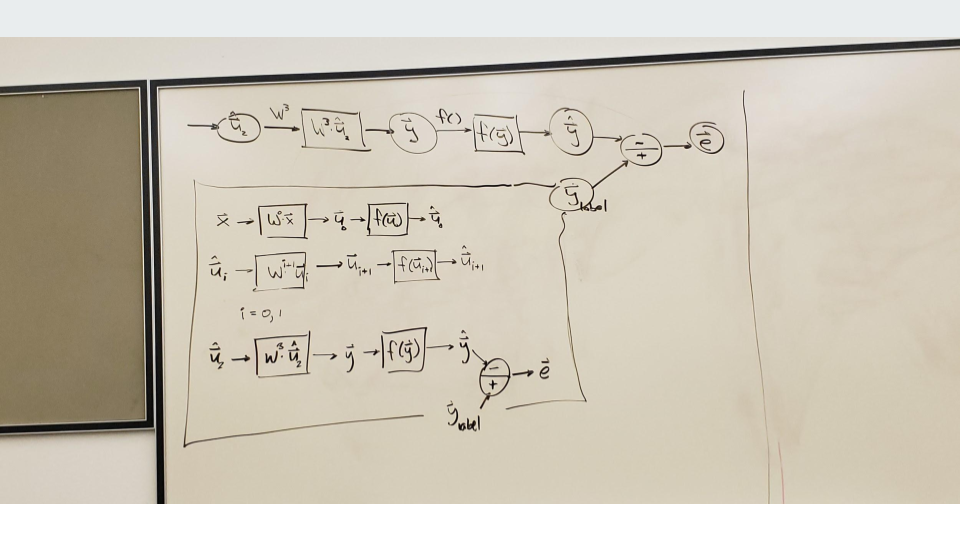 û⃗₂ W³ W³·û⃗₂ y⃗ f() f(y⃗) ŷ⃗ - + e⃗
y⃗label
x⃗ → W⁰·x⃗ → u⃗₀ → f(u⃗) → û⃗₀
û⃗ᵢ → Wⁱ⁺¹u⃗ᵢ → u⃗ᵢ₊₁ → f(u⃗ᵢ₊₁) → û⃗ᵢ₊₁
i = 0, 1
û⃗₂ → W³·û⃗₂ → y⃗ → f(y⃗) → ŷ⃗ - + → e⃗
y⃗label